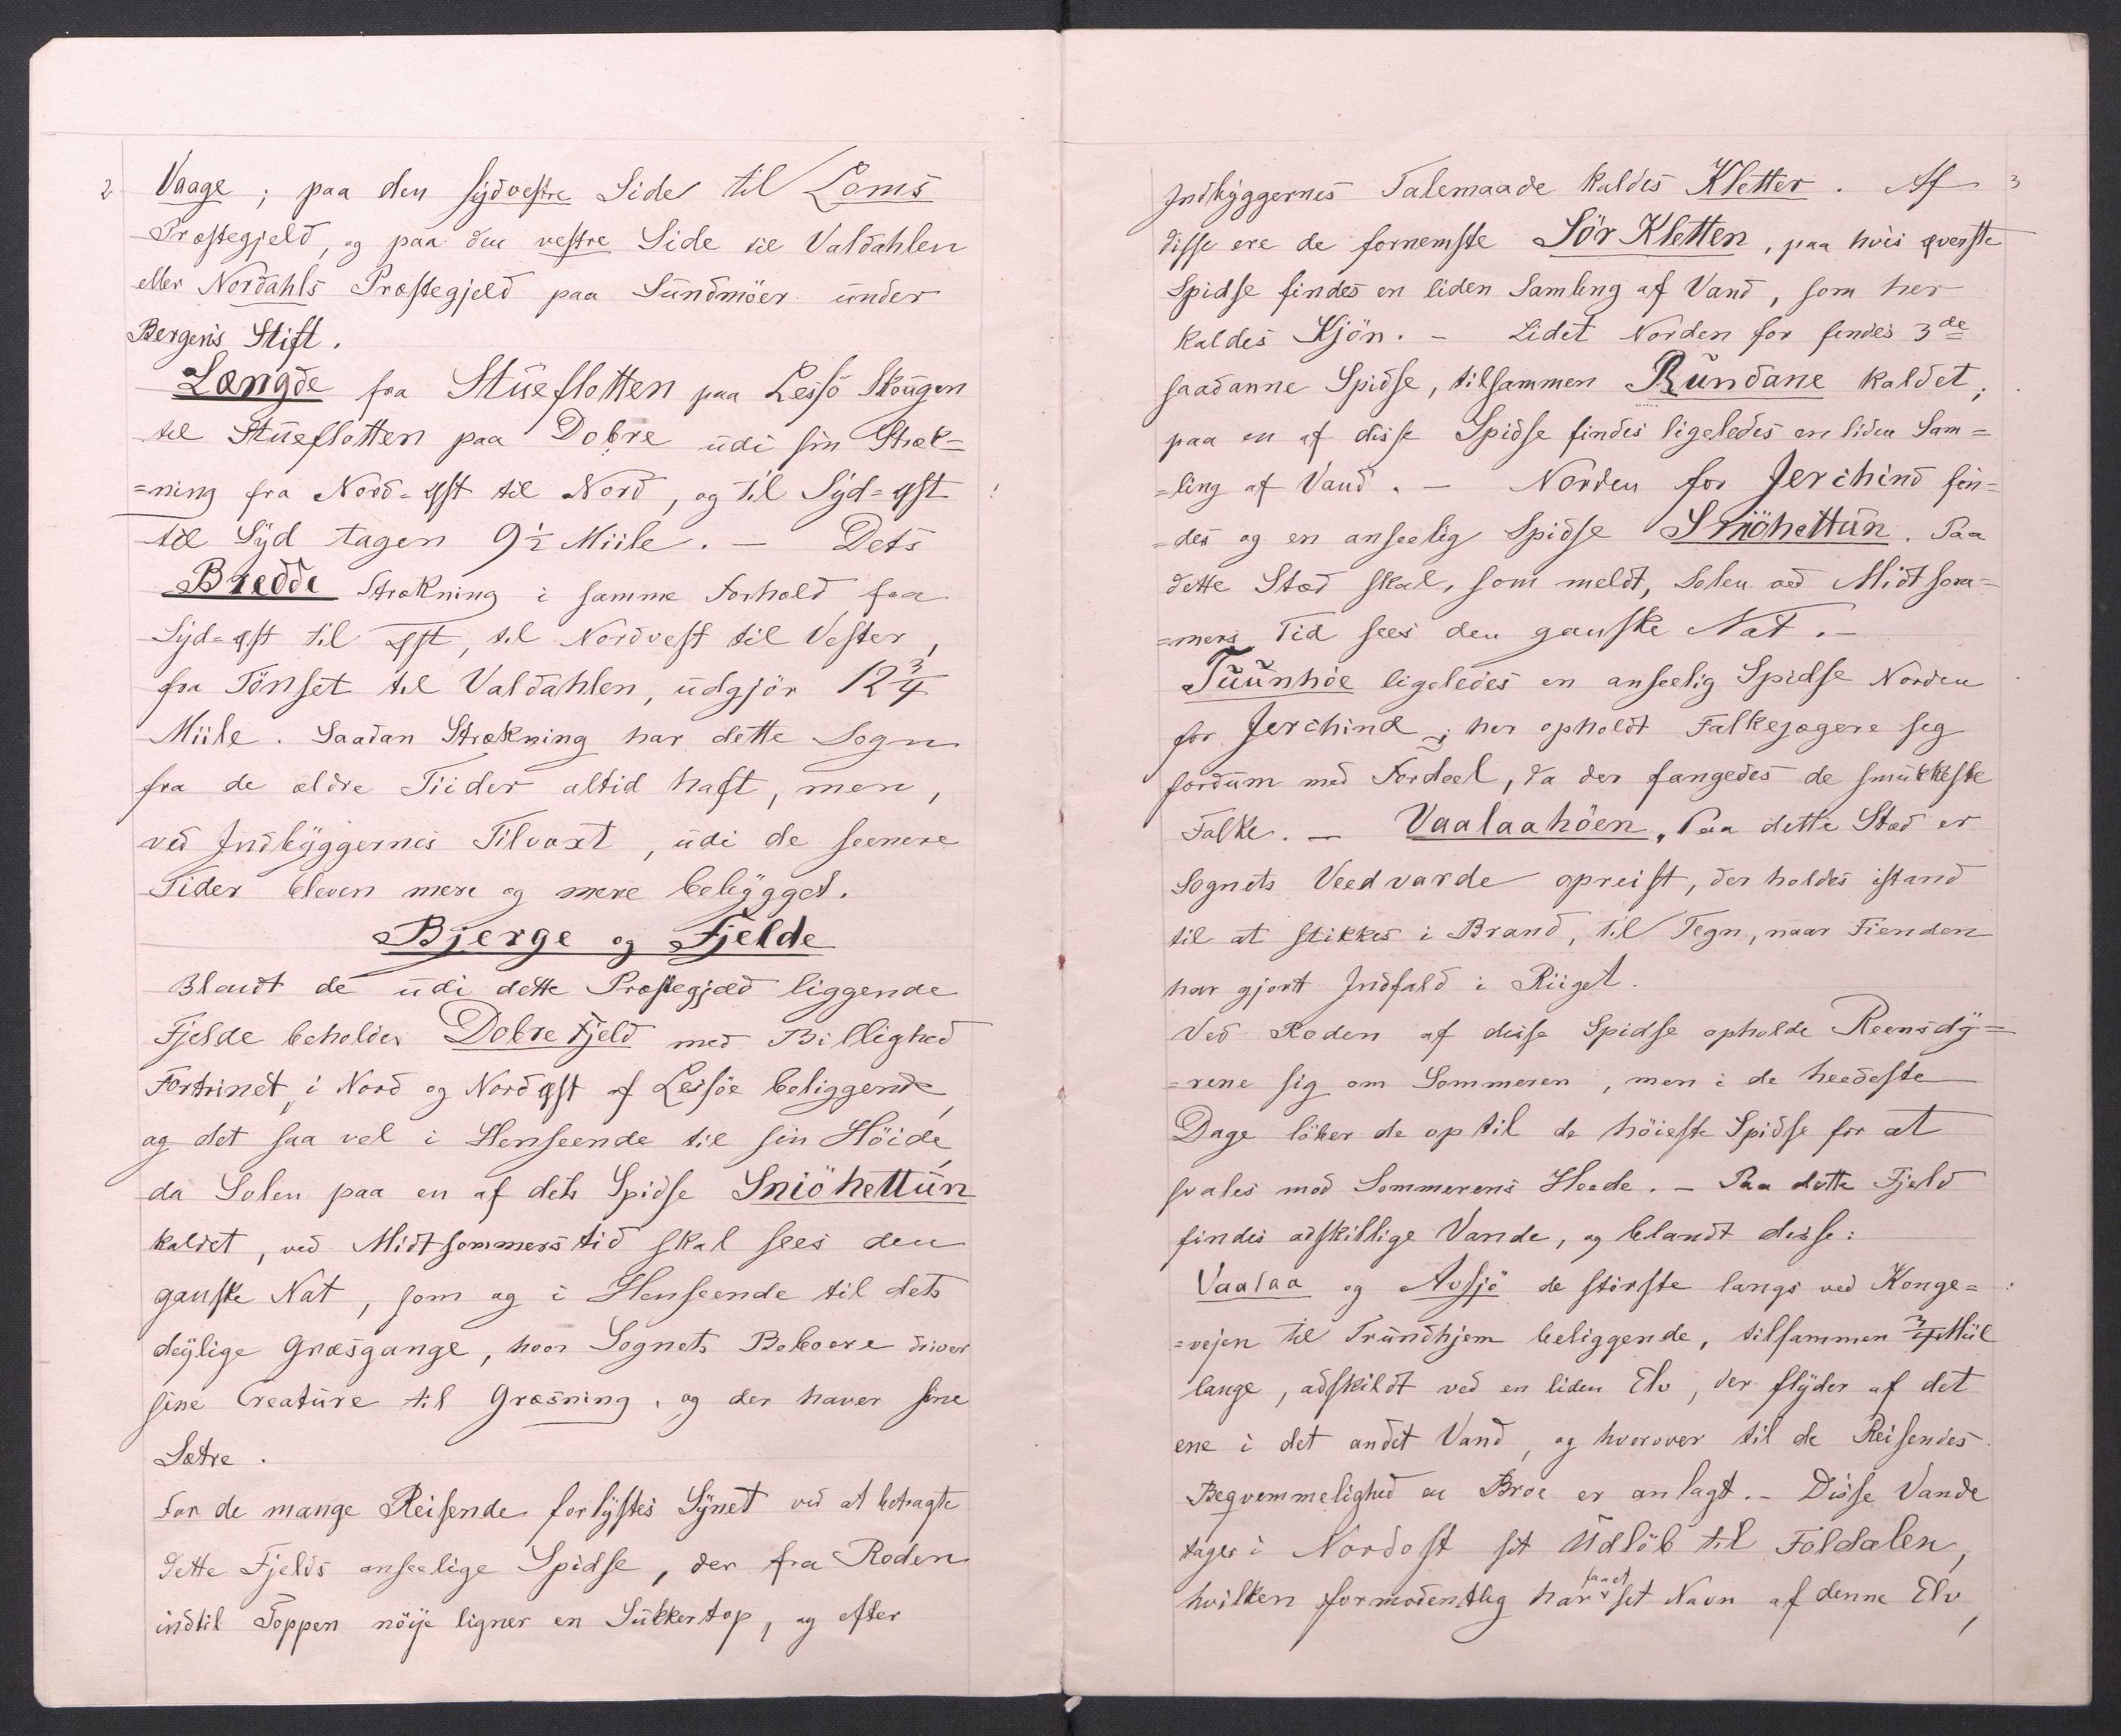 2 Vaage; paa den sydvestre Side til Loms
Præstegjeld, og paa den vestre Side til Valdahlen
eller Nordahls Præstegjeld paa Sündmöer ünder
Bergens Stift.
Længde fra Stüeflotten paa Lessö Skougen
til Stüeflotten paa Dobre üdi sin Stræk=
=ning fra Nord=øst til Nord, og til Syd=øst
til Syd tagen 9½ Miile. — Dets
Bredde Strækning i samme Forhold fra
Syd=øst til øst, til Nordvest til Vester,
fra Tönset til Valdahlen, üdgjör 12¾
Miile. Saadan Strækning har dette Sogn
fra de ældre Tiider altid haft, men,
ved Indbÿggernes Tilvoxt, üdi de seenere
Tider bleven mere og mere bebÿgget.
Bjerge og Fjelde
Blandt de üdi dette Præstegjæd liggende
Fjelde beholder Dobrefjeld med Billighed
Fortrinet, i Nord og Nordøst af Lessöe beliggende,
og det saa vel i Henseende til sin Höide,
da Solen paa en af dets Spidse Sniöhettün
kaldet, ved Midtsommers tid skal sees den
ganske Nat, som og i Henseende til dets
deÿlige Græsgange, hvor Sognets Beboere driver
sine Creatüre til Græsning, og der haver sine
Sætre.
For de mange Reisende forlÿstes Sÿnet ved at betragte
dette Fjelds anseelige Spidse, der fra Roden
indtil Toppen nöÿe ligner en Sükkertop, og efter
3
Indbÿggernes Talemaade kaldes Kletter. Af
disse ere de fornemste Sör Kletten, paa hvis øverste
Spidse findes en liden Samling af Vand, som her
kaldes Kjön. — Lidet Norden for findes 3de
saadanne Spidse, tilsammen Ründane kaldet;
paa en af disse Spidse findes ligeledes en liden Sam=
=ling af Vand. — Norden for Jerchind fin=
=des og en anseelig Spidse Sniöhettün. Paa
dette Stæd skal, som meldt, Solen ved Midtsom=
=mers Tid sees den ganske Nat. —
Tüünhöe ligeledes en anseelig Spidse Norden
for Jerchind; her opholdt Falkejægere seg
fordüm med Fordeel, da der fangedes de smükkeste
Falke. — Vaalaahöen. Paa dette Stæd er
Sognets Veedvarde opreist, der holdes istand
til at stikkes i Brand, til Tegn, naar Fienden
har gjort Indfald i Riiget.
Ved Roden af disse Spidse opholde Reensdÿ=
=rene sig om Sommeren, men i de heedeste
Dage löber de op til de höieste Spidse for at
svales mod Sommerens Heede. — Paa dette Fjeld
findes adskillige Vande, og blandt disse:
Vaalaa og Avsjö de störste langs ved Konge=
=vejen til Tründhjem beliggende, tilsammen ¾ Miil
lange, adskildt ved en liden Elv, der flÿder af det
ene i det andet Vand, og hvorover til de Reisendes
Beqvemmelighed en Broe er anlagt. — Disse Vande
tager i Nordost sit Üdlöb til Foldalen,
hvilken formodentlig har faaet sit Navn af denne Elv,